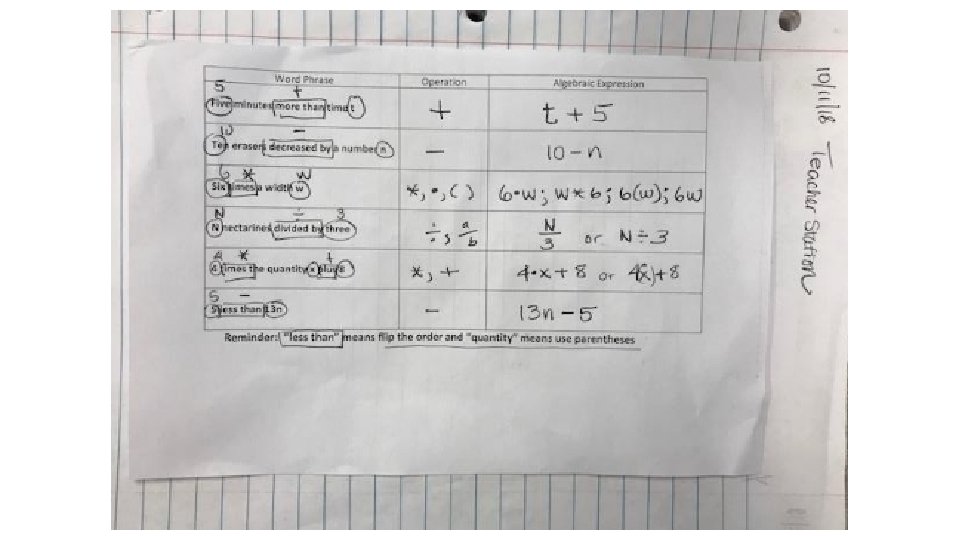 10/11/18 Teacher Station
Word Phrase Operation Algebraic Expression
5 +
Five minutes more than time t + t + 5
10 −
Ten erasers decreased by a number n − 10 − n
6 * w
Six times a width w *, •, ( ) 6•w; w*6; 6(w); 6w
N ÷ 3
N nectarines divided by three ÷, a/b N/3 or N÷3
4 * +
4 times the quantity x plus 8 *, + 4•x + 8 or 4(x)+8
5 −
5 less than 13n − 13n − 5
Reminder: "less than" means flip the order and "quantity" means use parentheses